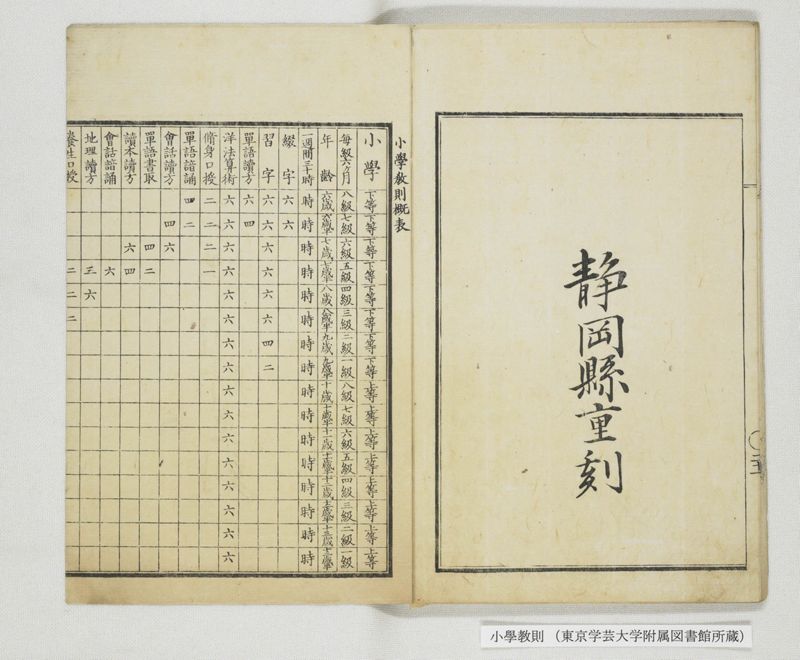 静岡縣重刻
小學教則概表
小學 下等 下等 下等 下等 下等 下等 下等 下等 上等 上等 上等 上等 上等 上等 上等 上等
毎級六ヶ月 八級 七級 六級 五級 四級 三級 二級 一級 八級 七級 六級 五級 四級 三級 二級 一級
年齢 六歳 六歳半 七歳 七歳半 八歳 八歳半 九歳 九歳半 十歳 十歳半 十一歳 十一歳半 十二歳 十二歳半 十三歳 十三歳半
一週間三十時 時 時 時 時 時 時 時 時 時 時 時 時 時 時 時 時
綴字 六 六
習字 六 六 六 六 六 六 四 二
單語讀方 六 四
洋法算術 六 六 六 六 六 六 六 六 六 六 六 六 六 六 六 六
脩身口授 二 二 二 一
單語諳誦 四 二
會話讀方 四 六
單語書取 四 二
讀本讀方 六 四
會話諳誦 六
地理讀方 三 六
養生口授 二 二 二
小學教則 （東京学芸大学附属図書館所蔵）